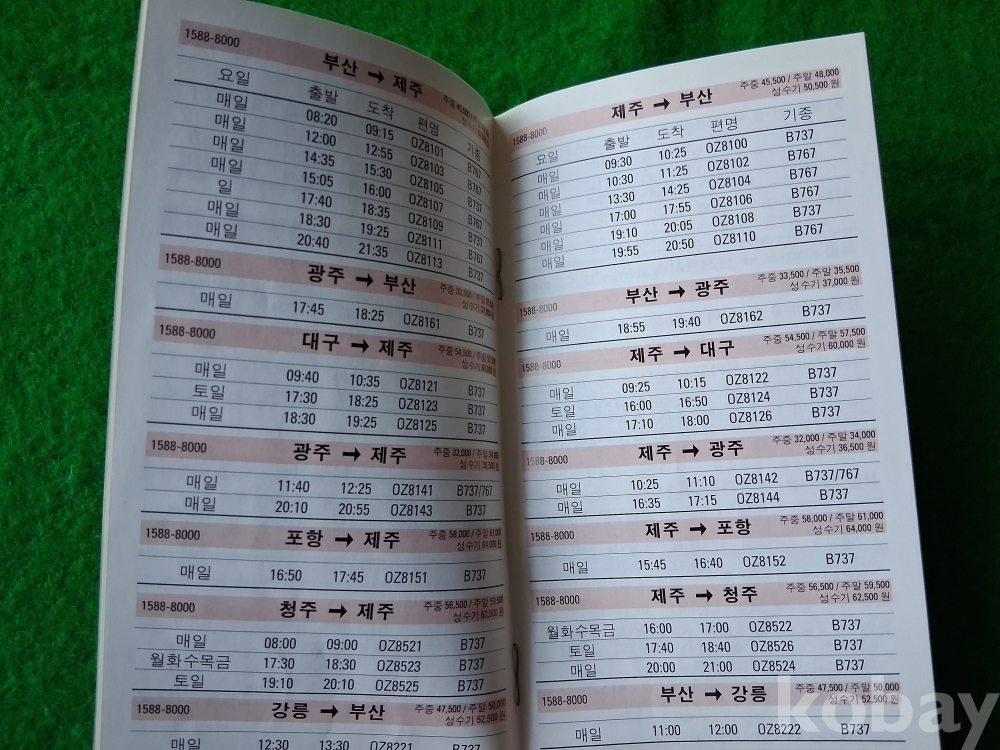 1588-8000 부산 → 제주 주중 45,500 / 주말
요일 출발 도착 편명 기종
매일 08:20 09:15 OZ8101 B767
매일 12:00 12:55 OZ8103 B767
매일 14:35 15:30 OZ8105
매일 15:05 16:00 OZ8107
일 17:40 18:35 OZ8109
매일 18:30 19:25 OZ8111
매일 20:40 21:35 OZ8113 B737
1588-8000 광주 → 부산 주중 33,500 / 주말
매일 17:45 18:25 OZ8161 B737
1588-8000 대구 → 제주 주중 54,500 / 주말
성수기 60,000 원
매일 09:40 10:35 OZ8121 B737
토일 17:30 18:25 OZ8123 B737
매일 18:30 19:25 OZ8125 B737
1588-8000 광주 → 제주 주중 32,000 / 주말 34,000
성수기 36,500 원
매일 11:40 12:25 OZ8141 B737/767
매일 20:10 20:55 OZ8143 B737
1588-8000 포항 → 제주 주중 58,000 / 주말 61,000
성수기 64,000 원
매일 16:50 17:45 OZ8151 B737
1588-8000 청주 → 제주 주중 56,500 / 주말 59,500
성수기 62,500 원
매일 08:00 09:00 OZ8521 B737
월화수목금 17:30 18:30 OZ8523 B737
토일 19:10 20:10 OZ8525 B737
1588-8000 강릉 → 부산 주중 47,500 / 주말 50,000
성수기 52,500 원
매일 12:30 13:30 OZ8221 B737
1588-8000 제주 → 부산 주중 45,500 / 주말 48,000
성수기 50,500 원
요일 출발 도착 편명 기종
매일 09:30 10:25 OZ8100 B737
매일 10:30 11:25 OZ8102 B767
매일 13:30 14:25 OZ8104 B767
매일 17:00 17:55 OZ8106 B767
매일 19:10 20:05 OZ8108 B737
매일 19:55 20:50 OZ8110 B767
1588-8000 부산 → 광주 주중 33,500 / 주말 35,500
성수기 37,000 원
매일 18:55 19:40 OZ8162 B737
1588-8000 제주 → 대구 주중 54,500 / 주말 57,500
성수기 60,000 원
매일 09:25 10:15 OZ8122 B737
토일 16:00 16:50 OZ8124 B737
매일 17:10 18:00 OZ8126 B737
1588-8000 제주 → 광주 주중 32,000 / 주말 34,000
성수기 36,500 원
매일 10:25 11:10 OZ8142 B737/767
매일 16:35 17:15 OZ8144 B737
1588-8000 제주 → 포항 주중 58,000 / 주말 61,000
성수기 64,000 원
매일 15:45 16:40 OZ8152 B737
1588-8000 제주 → 청주 주중 56,500 / 주말 59,500
성수기 62,500 원
월화수목금 16:00 17:00 OZ8522 B737
토일 17:40 18:40 OZ8526 B737
매일 20:00 21:00 OZ8524 B737
1588-8000 부산 → 강릉 주중 47,500 / 주말 50,000
성수기 52,500 원
매일 11:00 12:00 OZ8222 B737
kobay